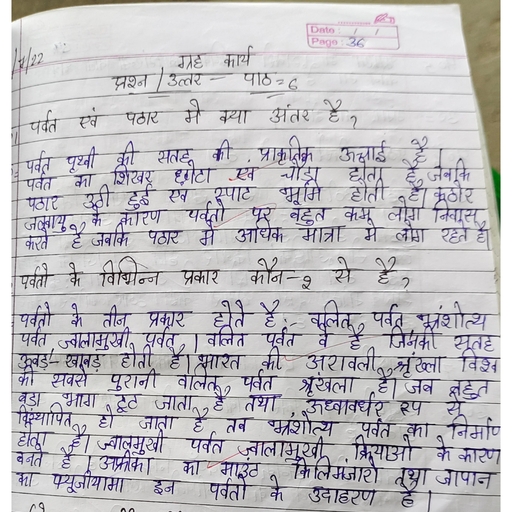 Date : / /
Page : 36
/22
ग्रह कार्य
प्रश्न / उत्तर — पाठ = 6
पर्वत एवं पठार में क्या अंतर है ?
पर्वत पृथ्वी की सतह की प्राकृतिक ऊचाई है ।
पर्वत का शिखर छोटा एवं चौड़ा होता है जबकि
पठार उठी हुई एवं सपाट भूमि होती है । कठोर
जलवायु के कारण पर्वतो पर बहुत कम लोग निवास
करते है जबकि पठार में अधिक मात्रा में लोग रहते है।
पर्वतो के विभिन्न प्रकार कौन-२ से है ?
पर्वतो के तीन प्रकार होते है :- वलित पर्वत भ्रंशोत्य
पर्वत ज्वालामुखी पर्वत । वलित पर्वत वे है जिनकी सतह
ऊबड़-खाबड़ होती है । भारत की अरावली श्रृंखला विश्व
की सबसे पुरानी वलित पर्वत श्रृंखला है। जब बहुत
बड़ा भाग टूट जाता है तथा ऊध्वावर्धर रूप से
विस्थापित हो जाता है तब भ्रंशोत्य पर्वत का निर्माण
होता है। ज्वालामुखी पर्वत ज्वालामुखी क्रियाओ के कारण
बनते है । अफ्रीका का माउंट किलिमंजारो तथा जापान
का फ्यूजीयामा इन पर्वतो के उदाहरण है ।